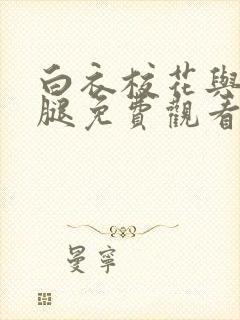 白衣校花與
腿免費觀看
曼寧